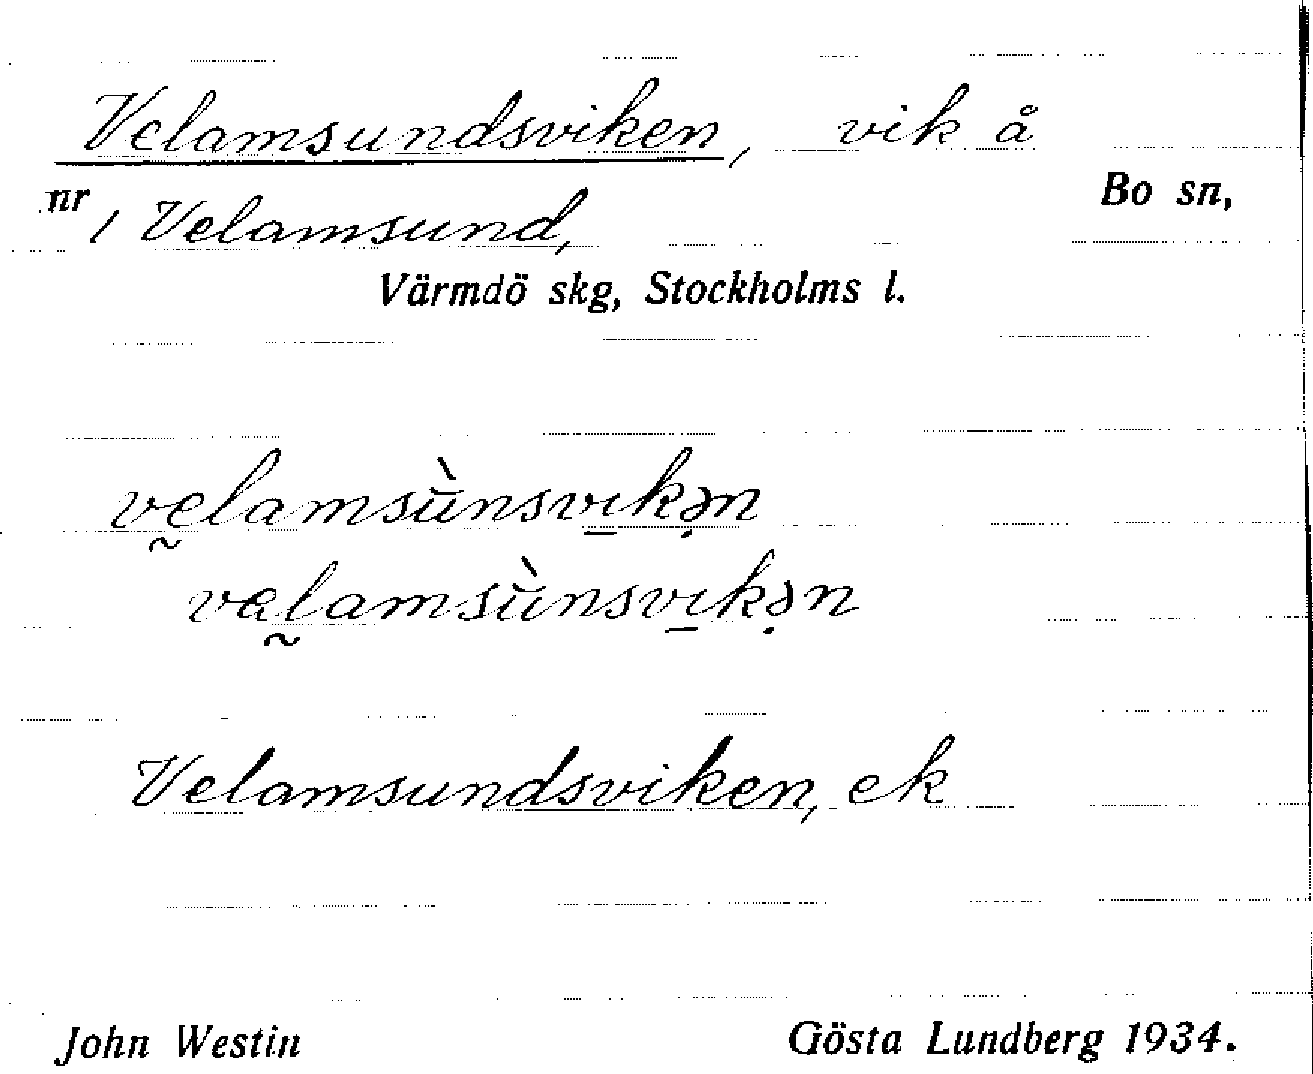 Velamsundsviken, vik å
nr 1 Velamsund, Bo sn,
Värmdö skg, Stockholms l.
vḛlamsùnsvi̱kə̣n
val̰amsùnsvi̱kə̣n
Velamsundsviken, ek
John Westin Gösta Lundberg 1934.